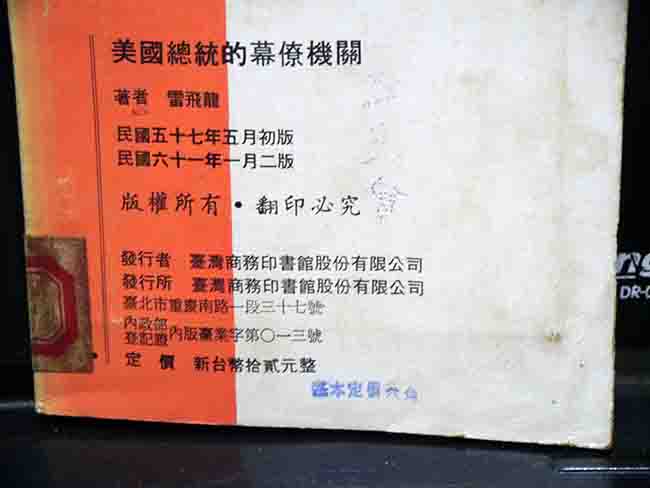 美國總統的幕僚機關
著者 雷飛龍
民國五十七年五月初版
民國六十一年一月二版
版權所有・翻印必究
發行者 臺灣商務印書館股份有限公司
發行所 臺灣商務印書館股份有限公司
臺北市重慶南路一段三十七號
內政部
登記證 內版臺業字第〇一三號
定價 新台幣拾貳元整
基本定價六角
DR-